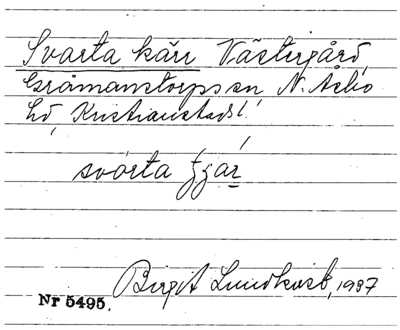 Svarta kärr Västergård,
Gråmanstorps sn N. Åsbo
hd, Kristianstads l.
svárta
Birgit Lundkvist, 1937
Nr 5495.